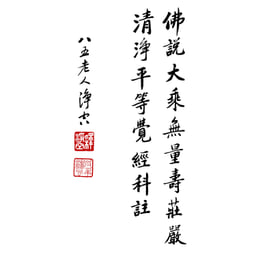 佛說大乘無量壽莊嚴
清淨平等覺經科註
八五老人淨空